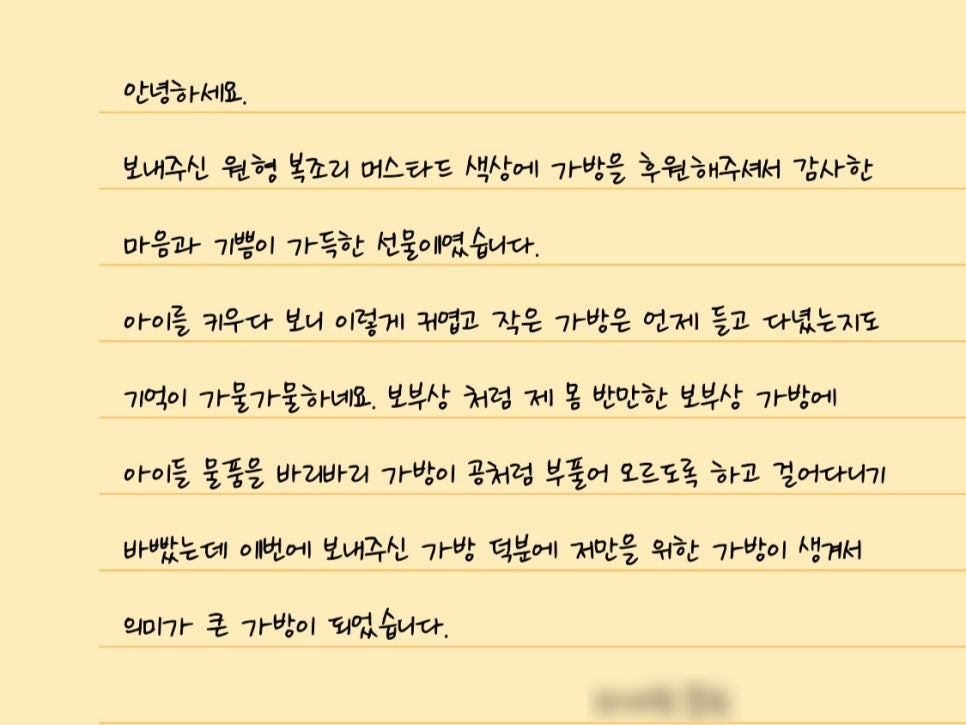 안녕하세요.
보내주신 원형 복조리 머스타드 색상에 가방을 후원해주셔서 감사한
마음과 기쁨이 가득한 선물이였습니다.
아이를 키우다 보니 이렇게 귀엽고 작은 가방은 언제 들고 다녔는지도
기억이 가물가물하네요. 보부상 처럼 제 몸 반만한 보부상 가방에
아이들 물품을 바리바리 가방이 공처럼 부풀어 오르도록 하고 걸어다니기
바빴는데 이번에 보내주신 가방 덕분에 저만을 위한 가방이 생겨서
의미가 큰 가방이 되었습니다.